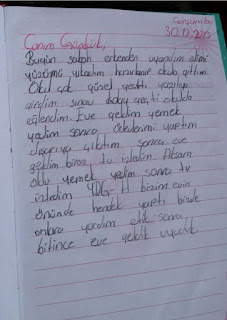 Çarşamba
30.12.2015
Canım Günlük,
Bugün sabah erkenden uyandım elimi
yüzümü yıkadım hazırlandım okula gittim
Okul çok güzel yazılı
sınav kolay geçti okulda
eğlendim. Eve geldim yemek
yedim sonra ödevlerimi yaptım
Dışarıya çıktım sonra eve
geldim biraz tv izledim. Akşam
oldu yemek yedim sonra tv
izledim YDG-H bizim evin
önünde hendek yaptı bizde
onlara yardım ettik sonra
bitince eve geldik uyuduk.